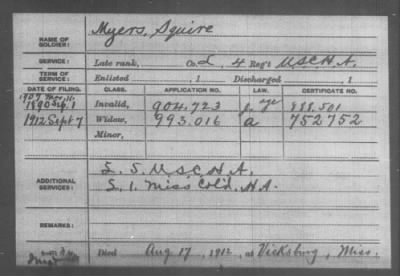 NAME OF SOLDIER: Myers, Squire
SERVICE: Late rank, Co. L, 4 Reg't U.S.C.H.A.
TERM OF SERVICE: Enlisted , 1 Discharged , 1
DATE OF FILING. CLASS. APPLICATION NO. LAW. CERTIFICATE NO.
1907
1890 Invalid, 904.723 888.501
1912 Sept 7 Widow, 993.016 a 752752
Minor,
ADDITIONAL SERVICES: L. 5. U.S.C.H.A.
L. 1. Miss. Col'd. H.A.
REMARKS:
Died Aug 17, 1912, at Vicksburg, Miss.